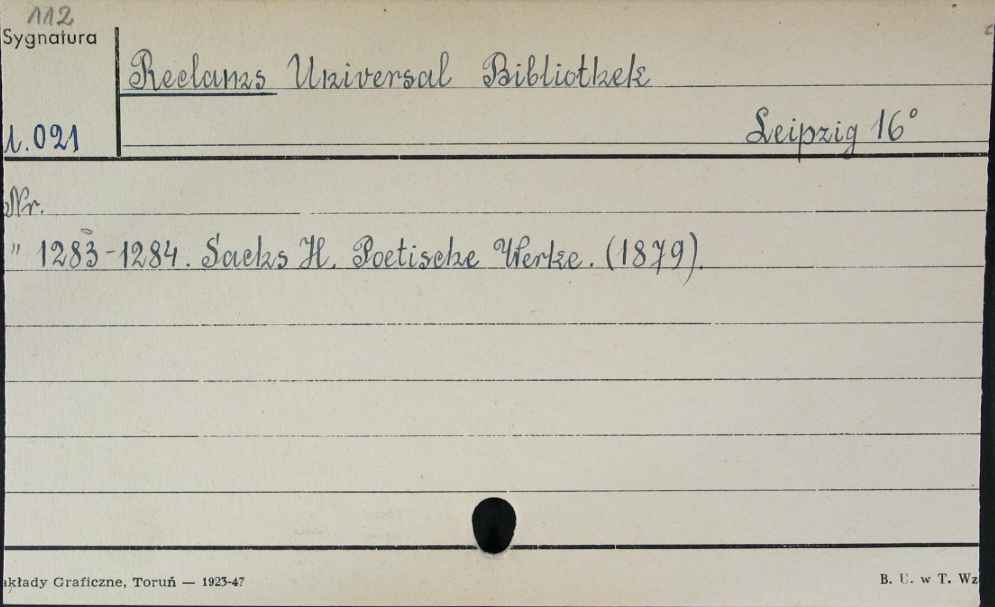 112
Sygnatura
Reclams Universal Bibliothek
1.021
Leipzig 16°
Nr.
" 1283-1284. Sachs H. Poetische Werke. (1879).
akłady Graficzne, Toruń — 1923-47
B. U. w T. Wz